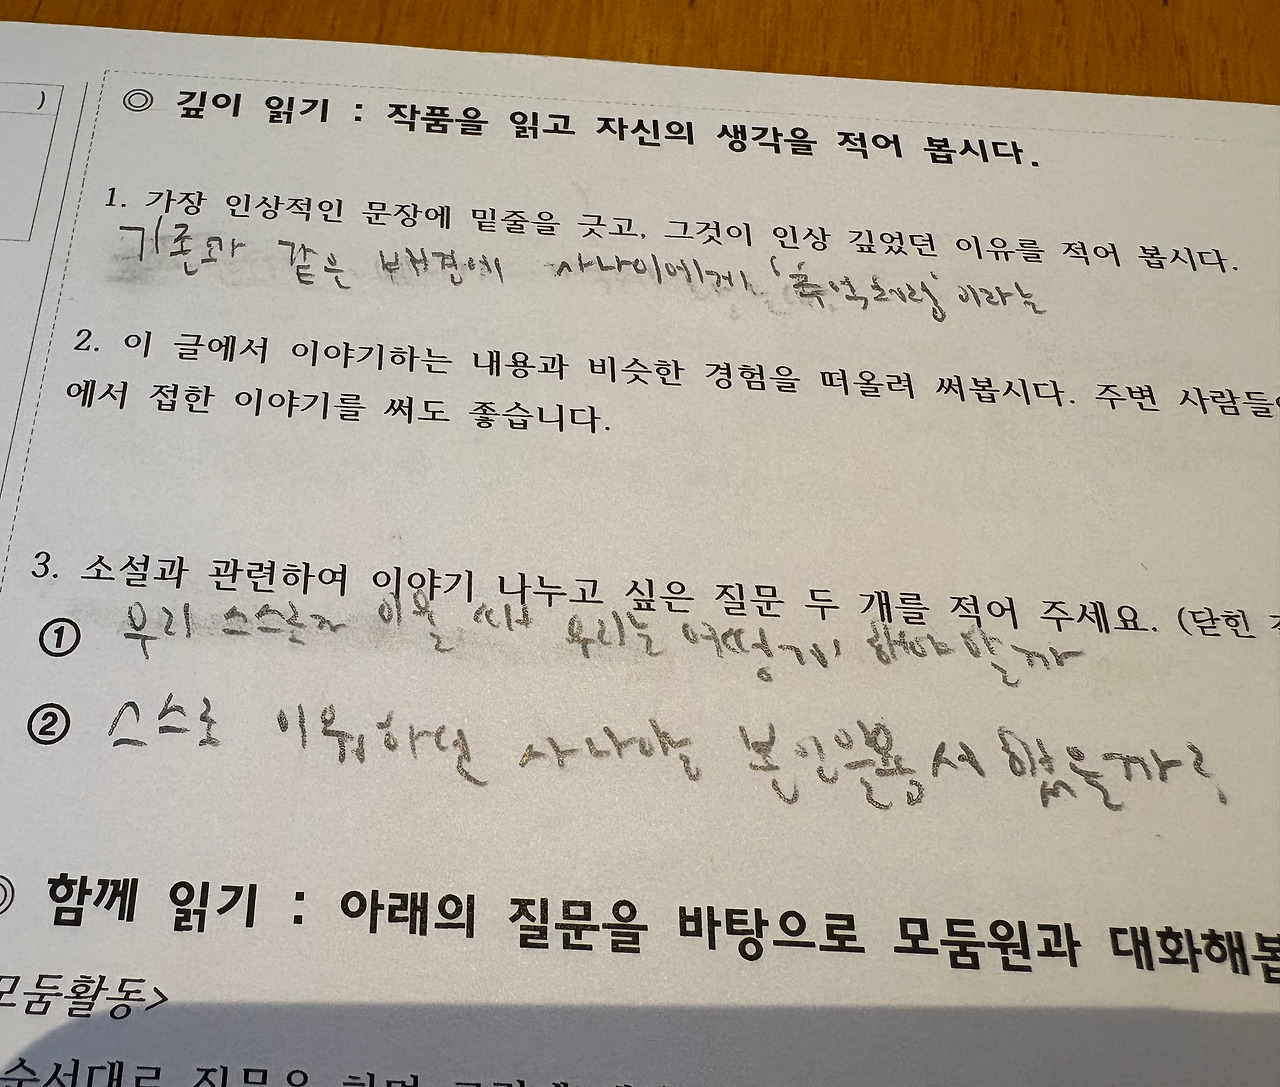 )
◎ 깊이 읽기 : 작품을 읽고 자신의 생각을 적어 봅시다.
1. 가장 인상적인 문장에 밑줄을 긋고, 그것이 인상 깊었던 이유를 적어 봅시다.
기존과 같은 배경에 사나이에게 '추억처럼' 이라는
2. 이 글에서 이야기하는 내용과 비슷한 경험을 떠올려 써봅시다. 주변 사람들
에서 접한 이야기를 써도 좋습니다.
3. 소설과 관련하여 이야기 나누고 싶은 질문 두 개를 적어 주세요. (닫힌
① 우리 스스로가 미울 때 우리는 어떻게 해야 할까
② 스스로 미워하던 사나이는 본인을 용서 했을까?
◎ 함께 읽기 : 아래의 질문을 바탕으로 모둠원과 대화해봅
모둠활동>
순서대로 질문을 하며